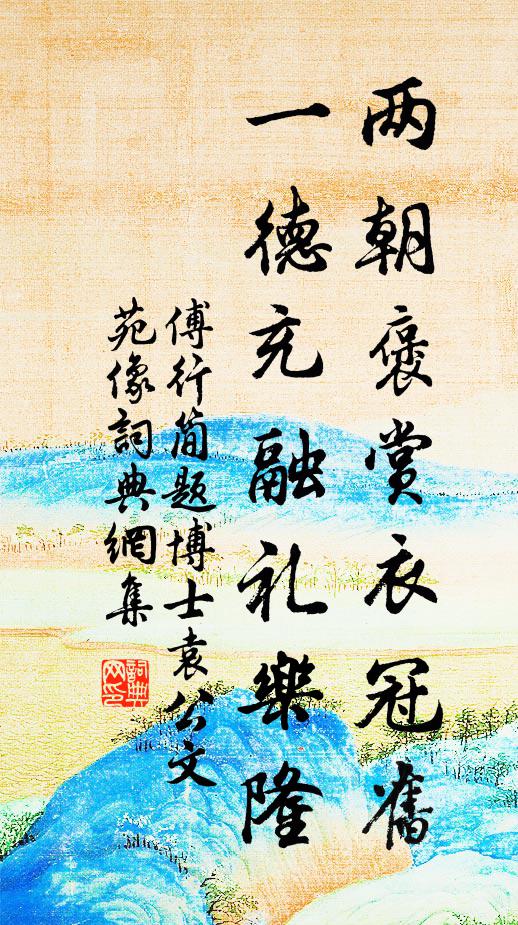 两朝褒赏衣冠舊
一德充融礼樂隆
傅行简题博士袁公文
苑像詞典網集
詞典网印